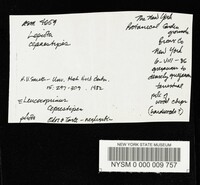 Lepiota
cepaestipes
A.H. Smith - Univ. Mich. Herb. Contr.
15: 297-309, 1982
= Leucocoprinus
cepaestipes
photo
The New York
Botanical Garden
grounds
Bronx Co
New York
6-VIII-86
gregarious to
densely gregarious
terrestrial
pile of
wood chips
(hardwoods?)
NEW YORK STATE MUSEUM
NYSM 0 000 009 757